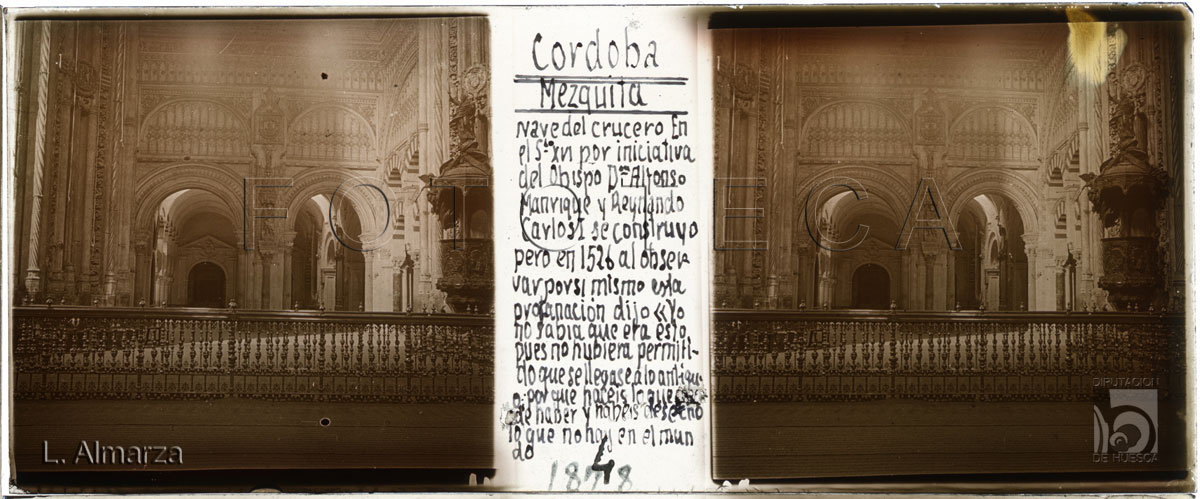 Cordoba
Mezquita
Nave del crucero En
el S.to XVI por iniciativa
del Obispo Dn Alfonso
Manrique y Reynando
Carlos I se construyo
pero en 1526 al obser-
var por si mismo esta
profanación dijo «Yo
no sabia que era esto
pues no hubiera permiti-
do que se llegase a lo antigu-
o, porque haceis lo que
de haber y habeis desecho
lo que no hay en el mun
do
FOTOTECA
L. Almarza
DIPUTACION
DE HUESCA